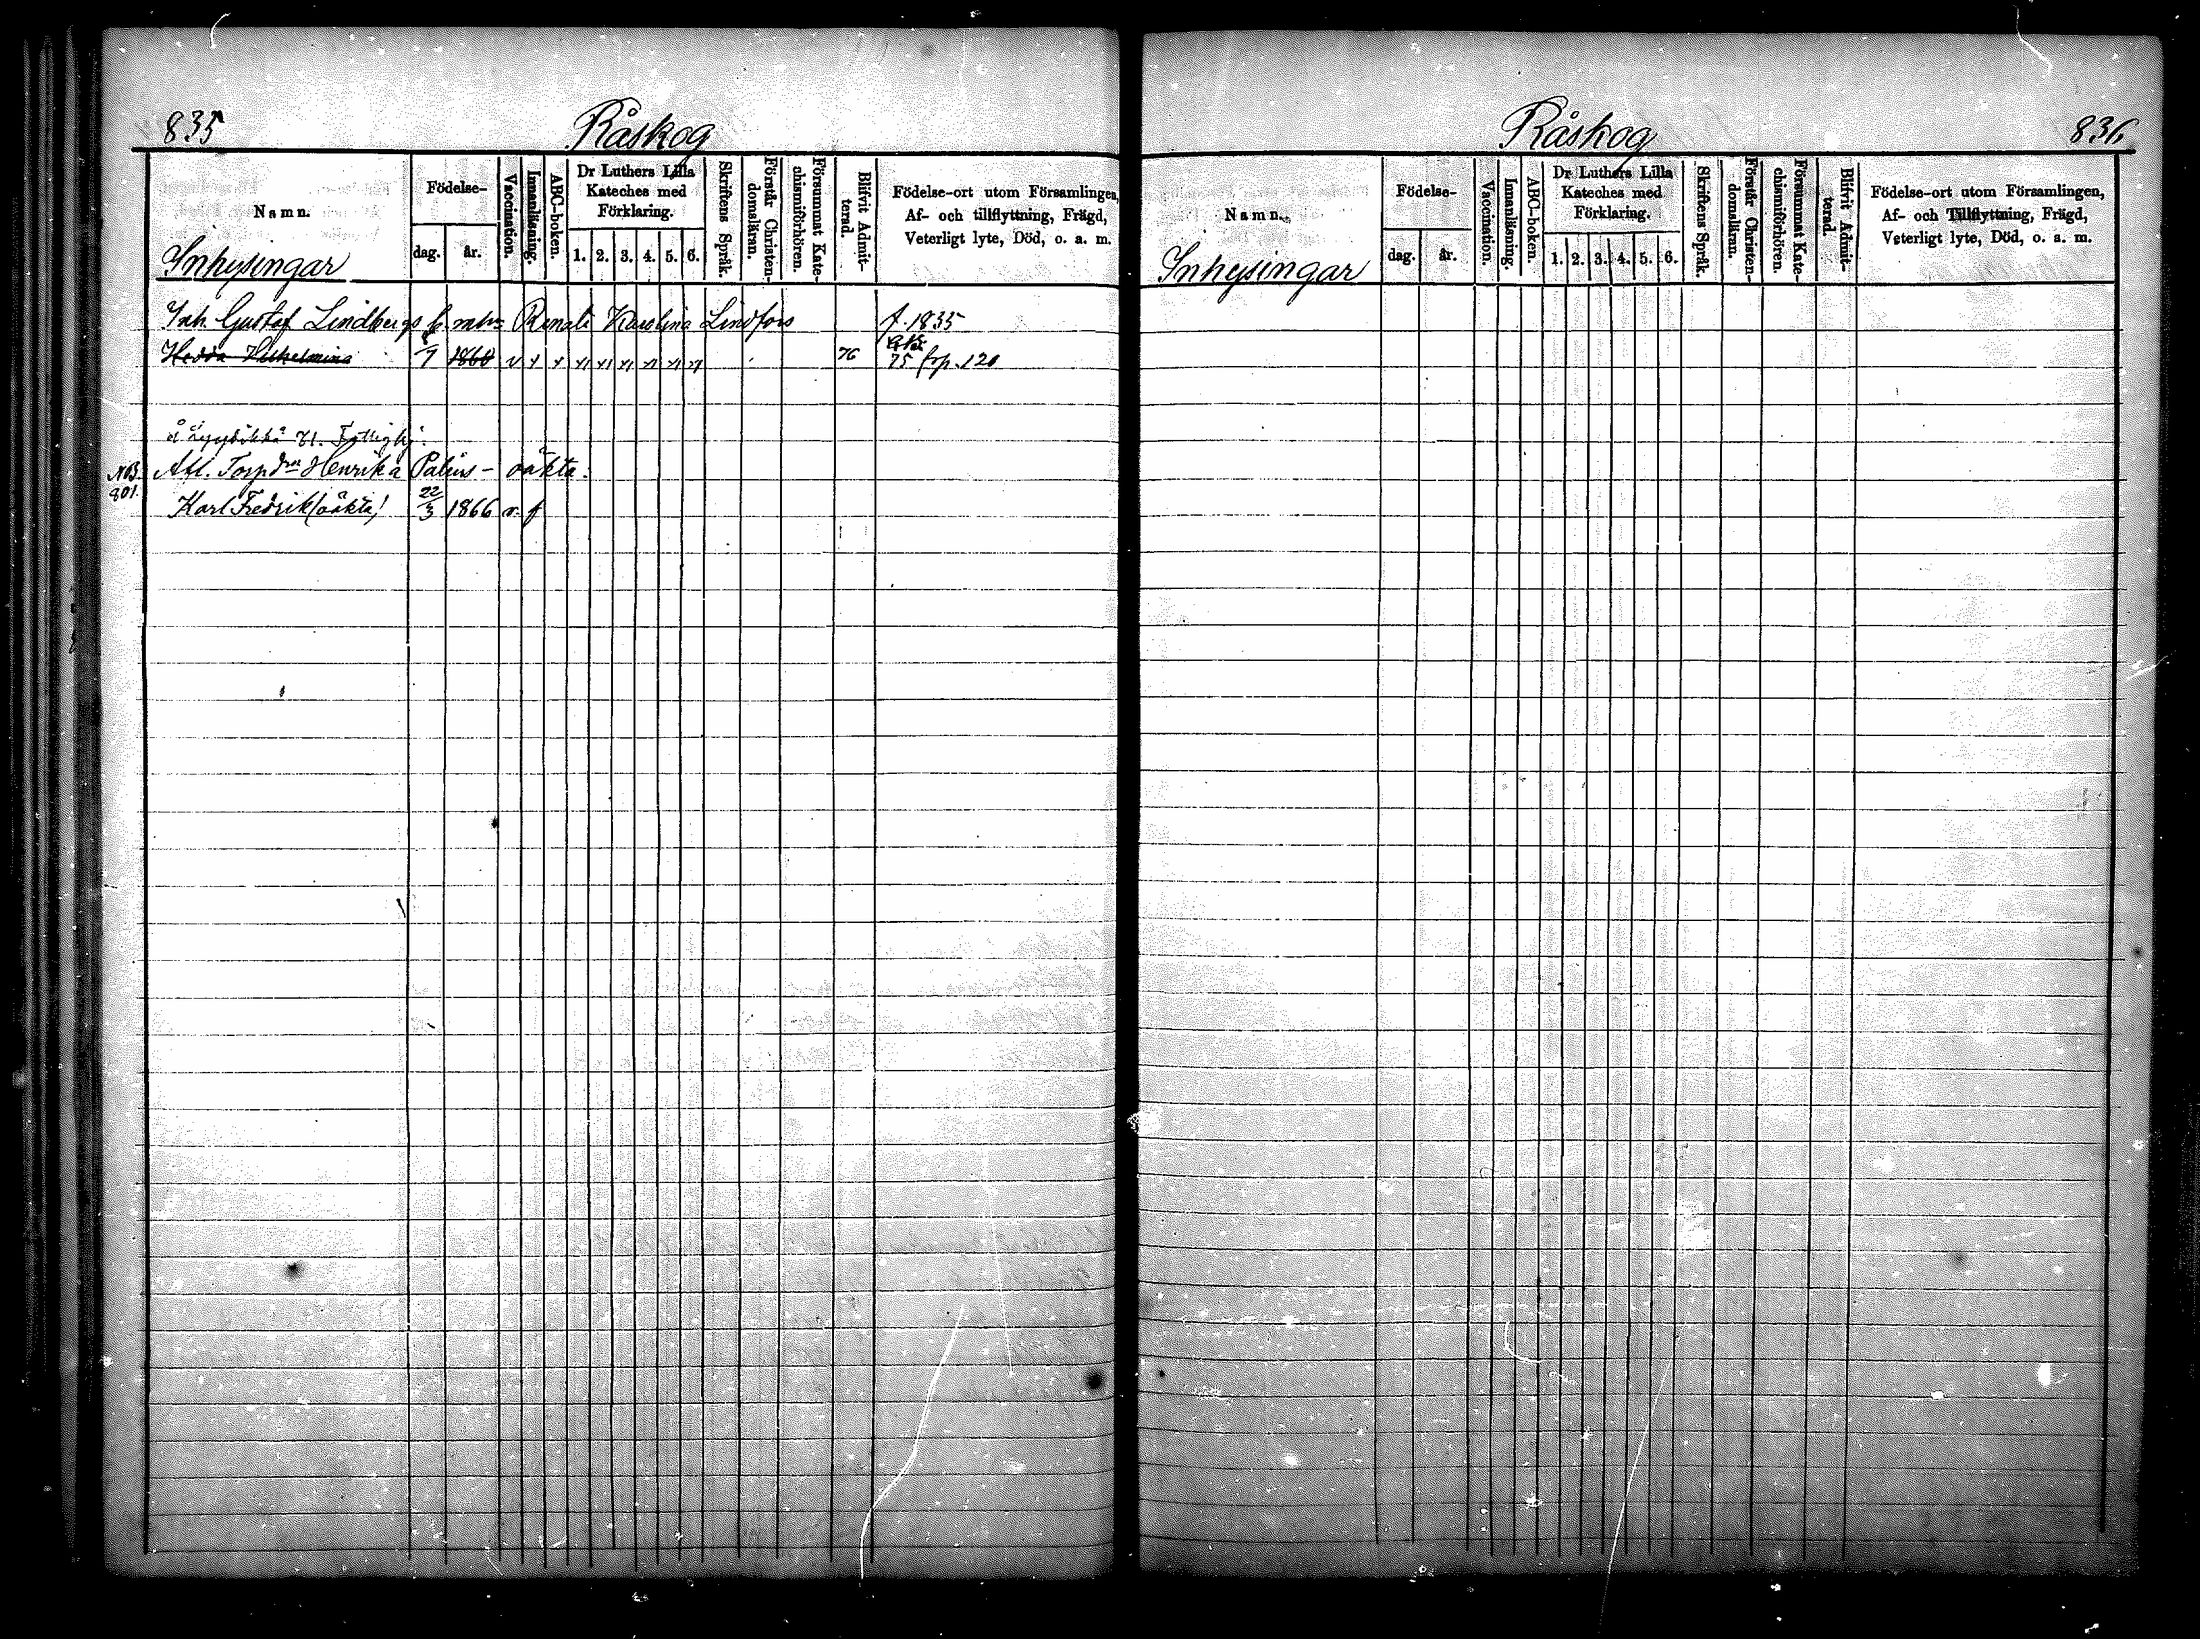 835
Råskog
Namn.
Födelse-
dag. år.
Vaccination.
Innanläsning.
ABC-boken.
Dr Luthers Lilla
Kateches med
Förklaring.
1. 2. 3. 4. 5. 6.
Skriftens Språk.
Förstår Christen-
domsläran.
Försummat Kate-
chismiförhören.
Blifvit Admit-
terad.
Födelse-ort utom Församlingen,
Af- och tillflyttning, Frägd,
Veterligt lyte, Död, o. a. m.
Inhysingar
Inh. Gustaf Lindbergs Renata Karolina Lindfors f. 1835
Hedda Wilhelmina 1860 76 75 120
Afl. Henrika Palins - oäkta:
N03.
801.
Karl Fredrik (oäkta) 22/3 1866 v. f
Råskog
836
Namn.
Födelse-
dag. år.
Vaccination.
Innanläsning.
ABC-boken.
Dr Luthers Lilla
Kateches med
Förklaring.
1. 2. 3. 4. 5. 6.
Skriftens Språk.
Förstår Christen-
domsläran.
Försummat Kate-
chismiförhören.
Blifvit Admit-
terad.
Födelse-ort utom Församlingen,
Af- och Tillflyttning, Frägd,
Veterligt lyte, Död, o. a. m.
Inhysingar